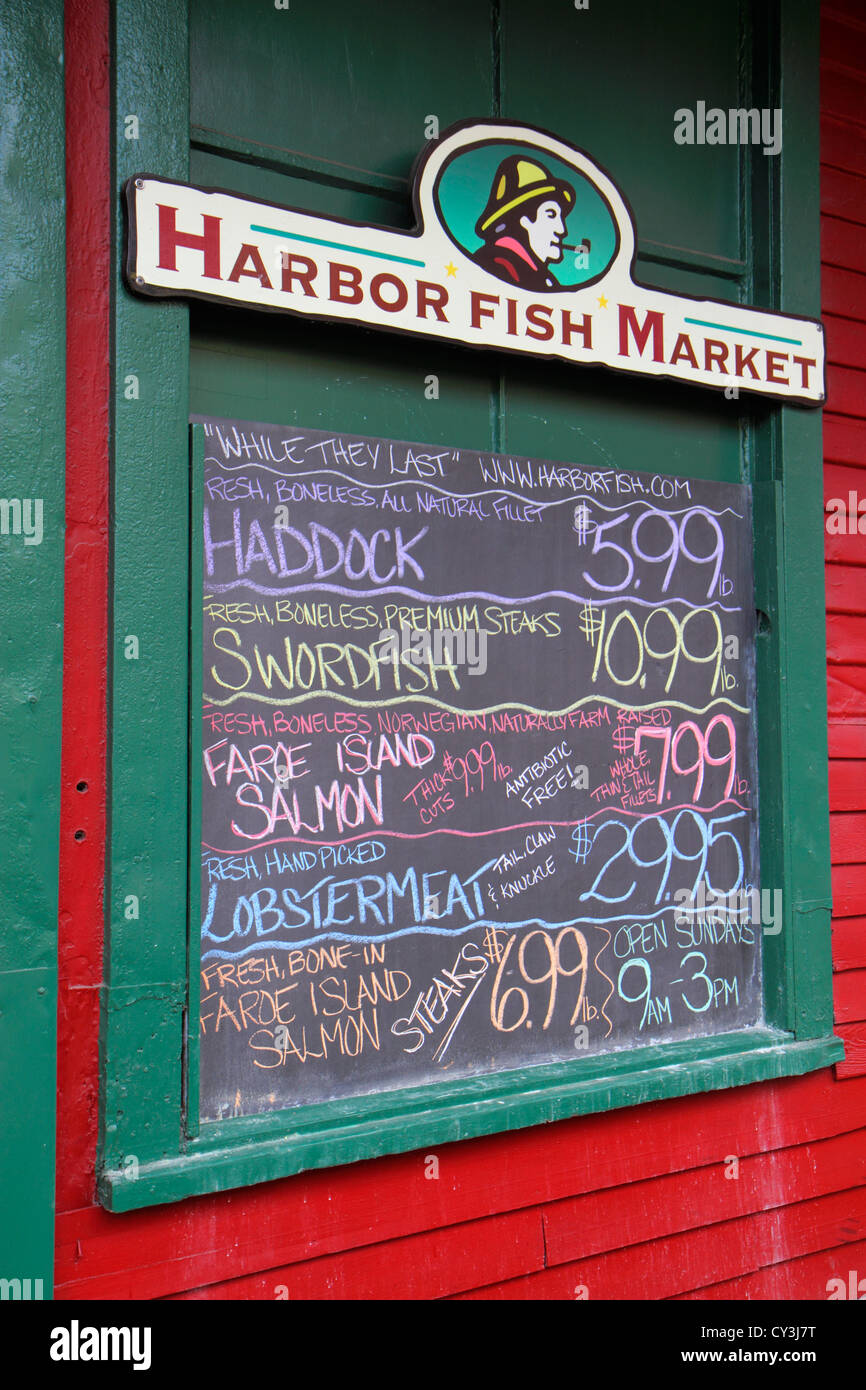 HARBOR FISH MARKET
"WHILE THEY LAST" WWW.HARBORFISH.COM
RESH, BONELESS, ALL NATURAL FILLET
HADDOCK $5.99 lb.
FRESH, BONELESS, PREMIUM STEAKS
SWORDFISH $10.99 lb.
FRESH, BONELESS, NORWEGIAN, NATURALLY FARM RAISED
FAROE ISLAND
SALMON
THICK $9.99 lb.
CUTS
ANTIBIOTIC
FREE!
$7.99 lb.
WHOLE
THIN & TAIL
FILLETS
FRESH, HAND PICKED
LOBSTERMEAT
TAIL, CLAW
& KNUCKLE
$29.95 lb
FRESH, BONE-IN
FAROE ISLAND
SALMON
STEAKS $6.99 lb.
OPEN SUNDAYS
9AM - 3PM
alamy
Image ID: CY3J7T
www.alamy.com